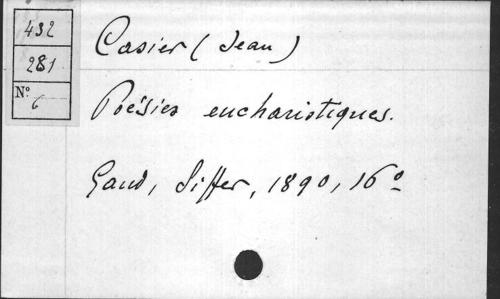 432
281
N° 6
Casier (Jean)
Poésies eucharistiques.
Gand, Siffer, 1890, 16°